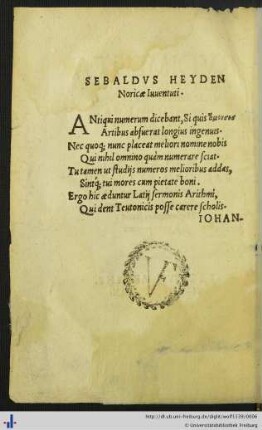 SEBALDVS HEYDEN
Noricæ Iuuentuti.
ANtiqui numerum dicebant, Si quis
Artibus abfuerat longius ingenuis.
Nec quoq; nunc placeat meliori nomine nobis
Qui nihil omnino quàm numerare sciat.
Tu tamen ut studijs numeros melioribus addas,
Sintq; tui mores cum pietate boni.
Ergo hic æduntur Latij sermonis Arithmi,
Qui dent Teutonicis posse carere scholis.
IOHAN-
VF
http://dl.ub.uni-freiburg.de/diglit/
© Universitätsbibliothek Freiburg